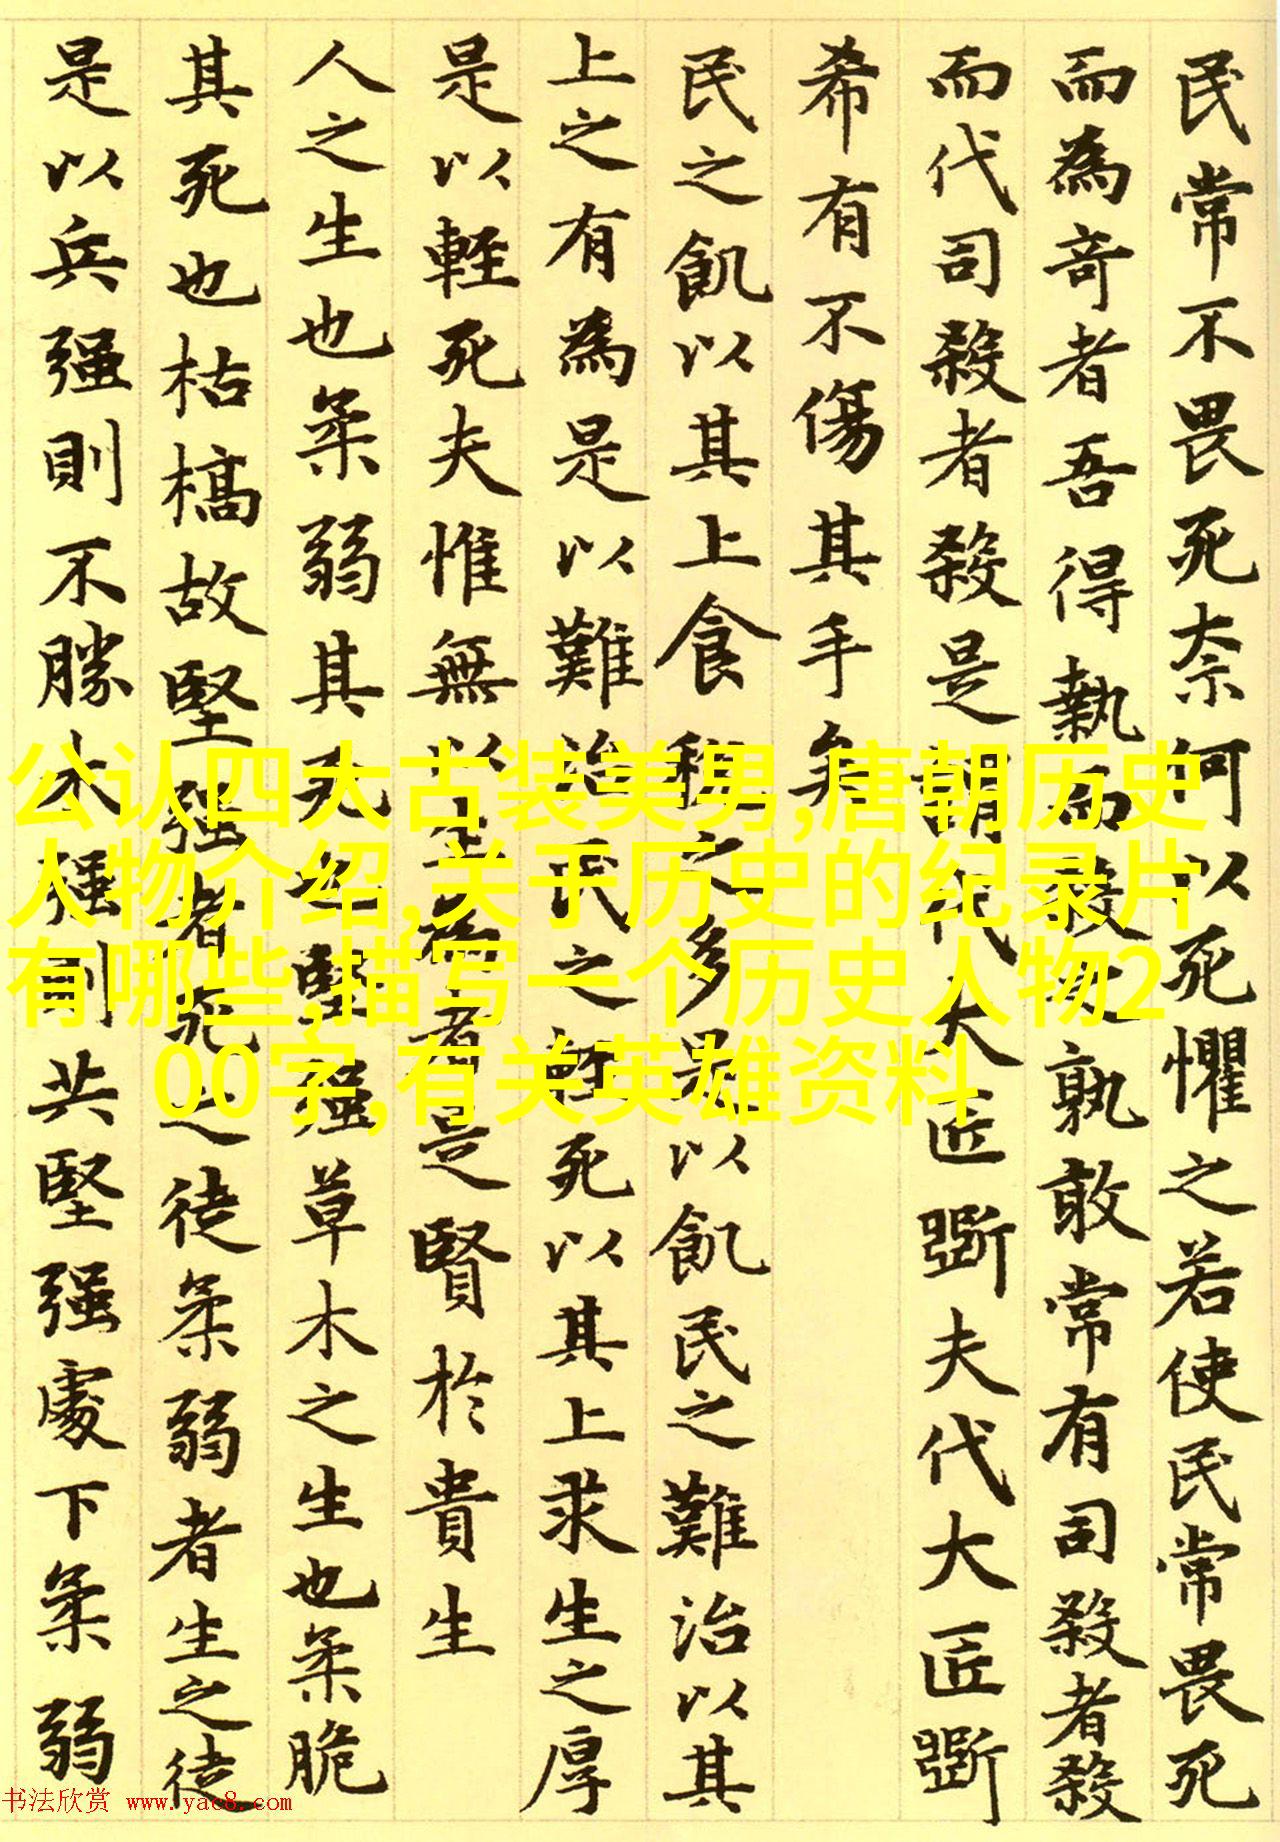 民常不畏死柰何以死懼之若使民常畏死
而為奇者吾得執而殺之孰敢常有司殺者殺
而代司殺者殺是謂代大匠斲夫代大匠斲
希有不傷其手矣
民之飢以其上食稅之多是以飢民之難治以其
上之有為是以難治民之輕死以其上求生之厚
是以輕死夫惟無以生為者是賢於貴生
人之生也柔弱其死也堅強草木之生也柔脆
其死也枯槁故堅强者死之徒柔弱者生之徒
是以兵强則不勝木强則共堅强處下柔弱
公认四大古装美男,唐朝历史
人物介绍,关于历史的纪录片
有哪些,描写一个历史人物2
00字,有关英雄资料
书法欣赏 www.yac8.com